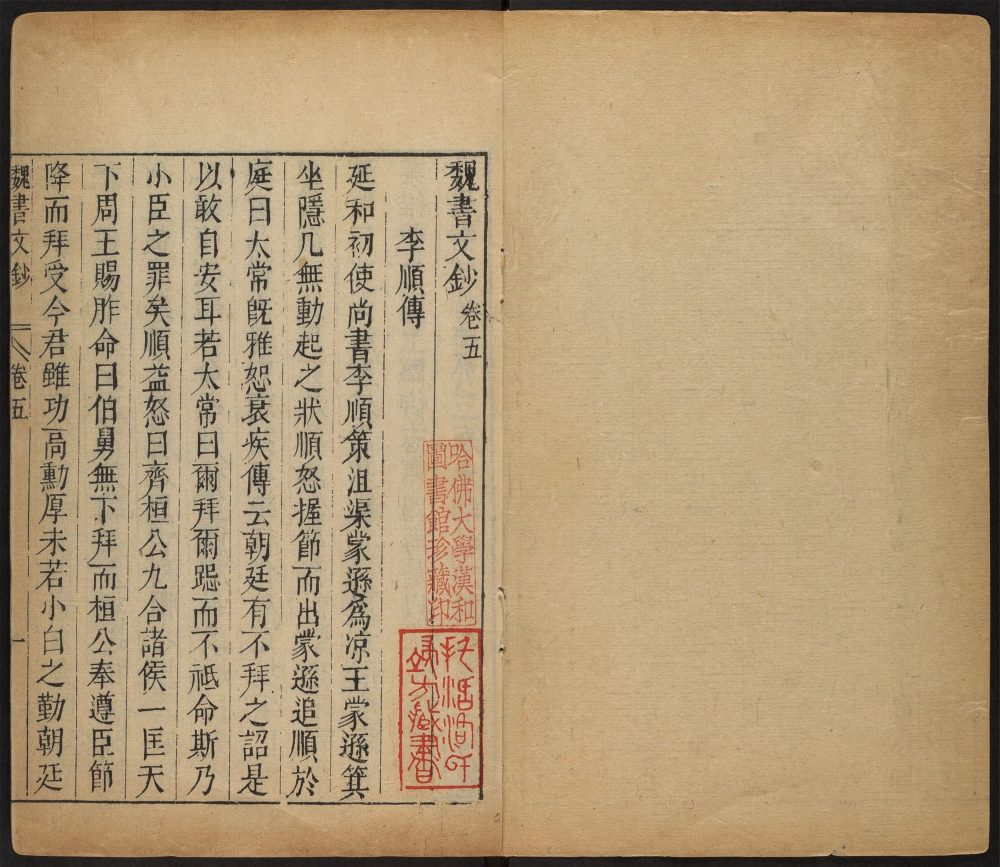 魏書文鈔 卷五
李順傳
延和初使尚書李順策沮渠蒙遜爲凉王蒙遜箕
坐隱几無動起之狀順怒握節而出蒙遜追順於
庭曰太常旣雅恕衰疾傳云朝廷有不拜之詔是
以敢自安耳若太常曰爾拜爾跽而不祗命斯乃
小臣之罪矣順益怒曰齊桓公九合諸侯一匡天
下周王賜胙命曰伯舅無下拜而桓公奉遵臣節
降而拜受今君雖功高勳厚未若小白之勤朝廷
魏書文鈔 卷五 一
哈佛大學漢和
圖書館珍藏印
托活洛氏
端方藏書